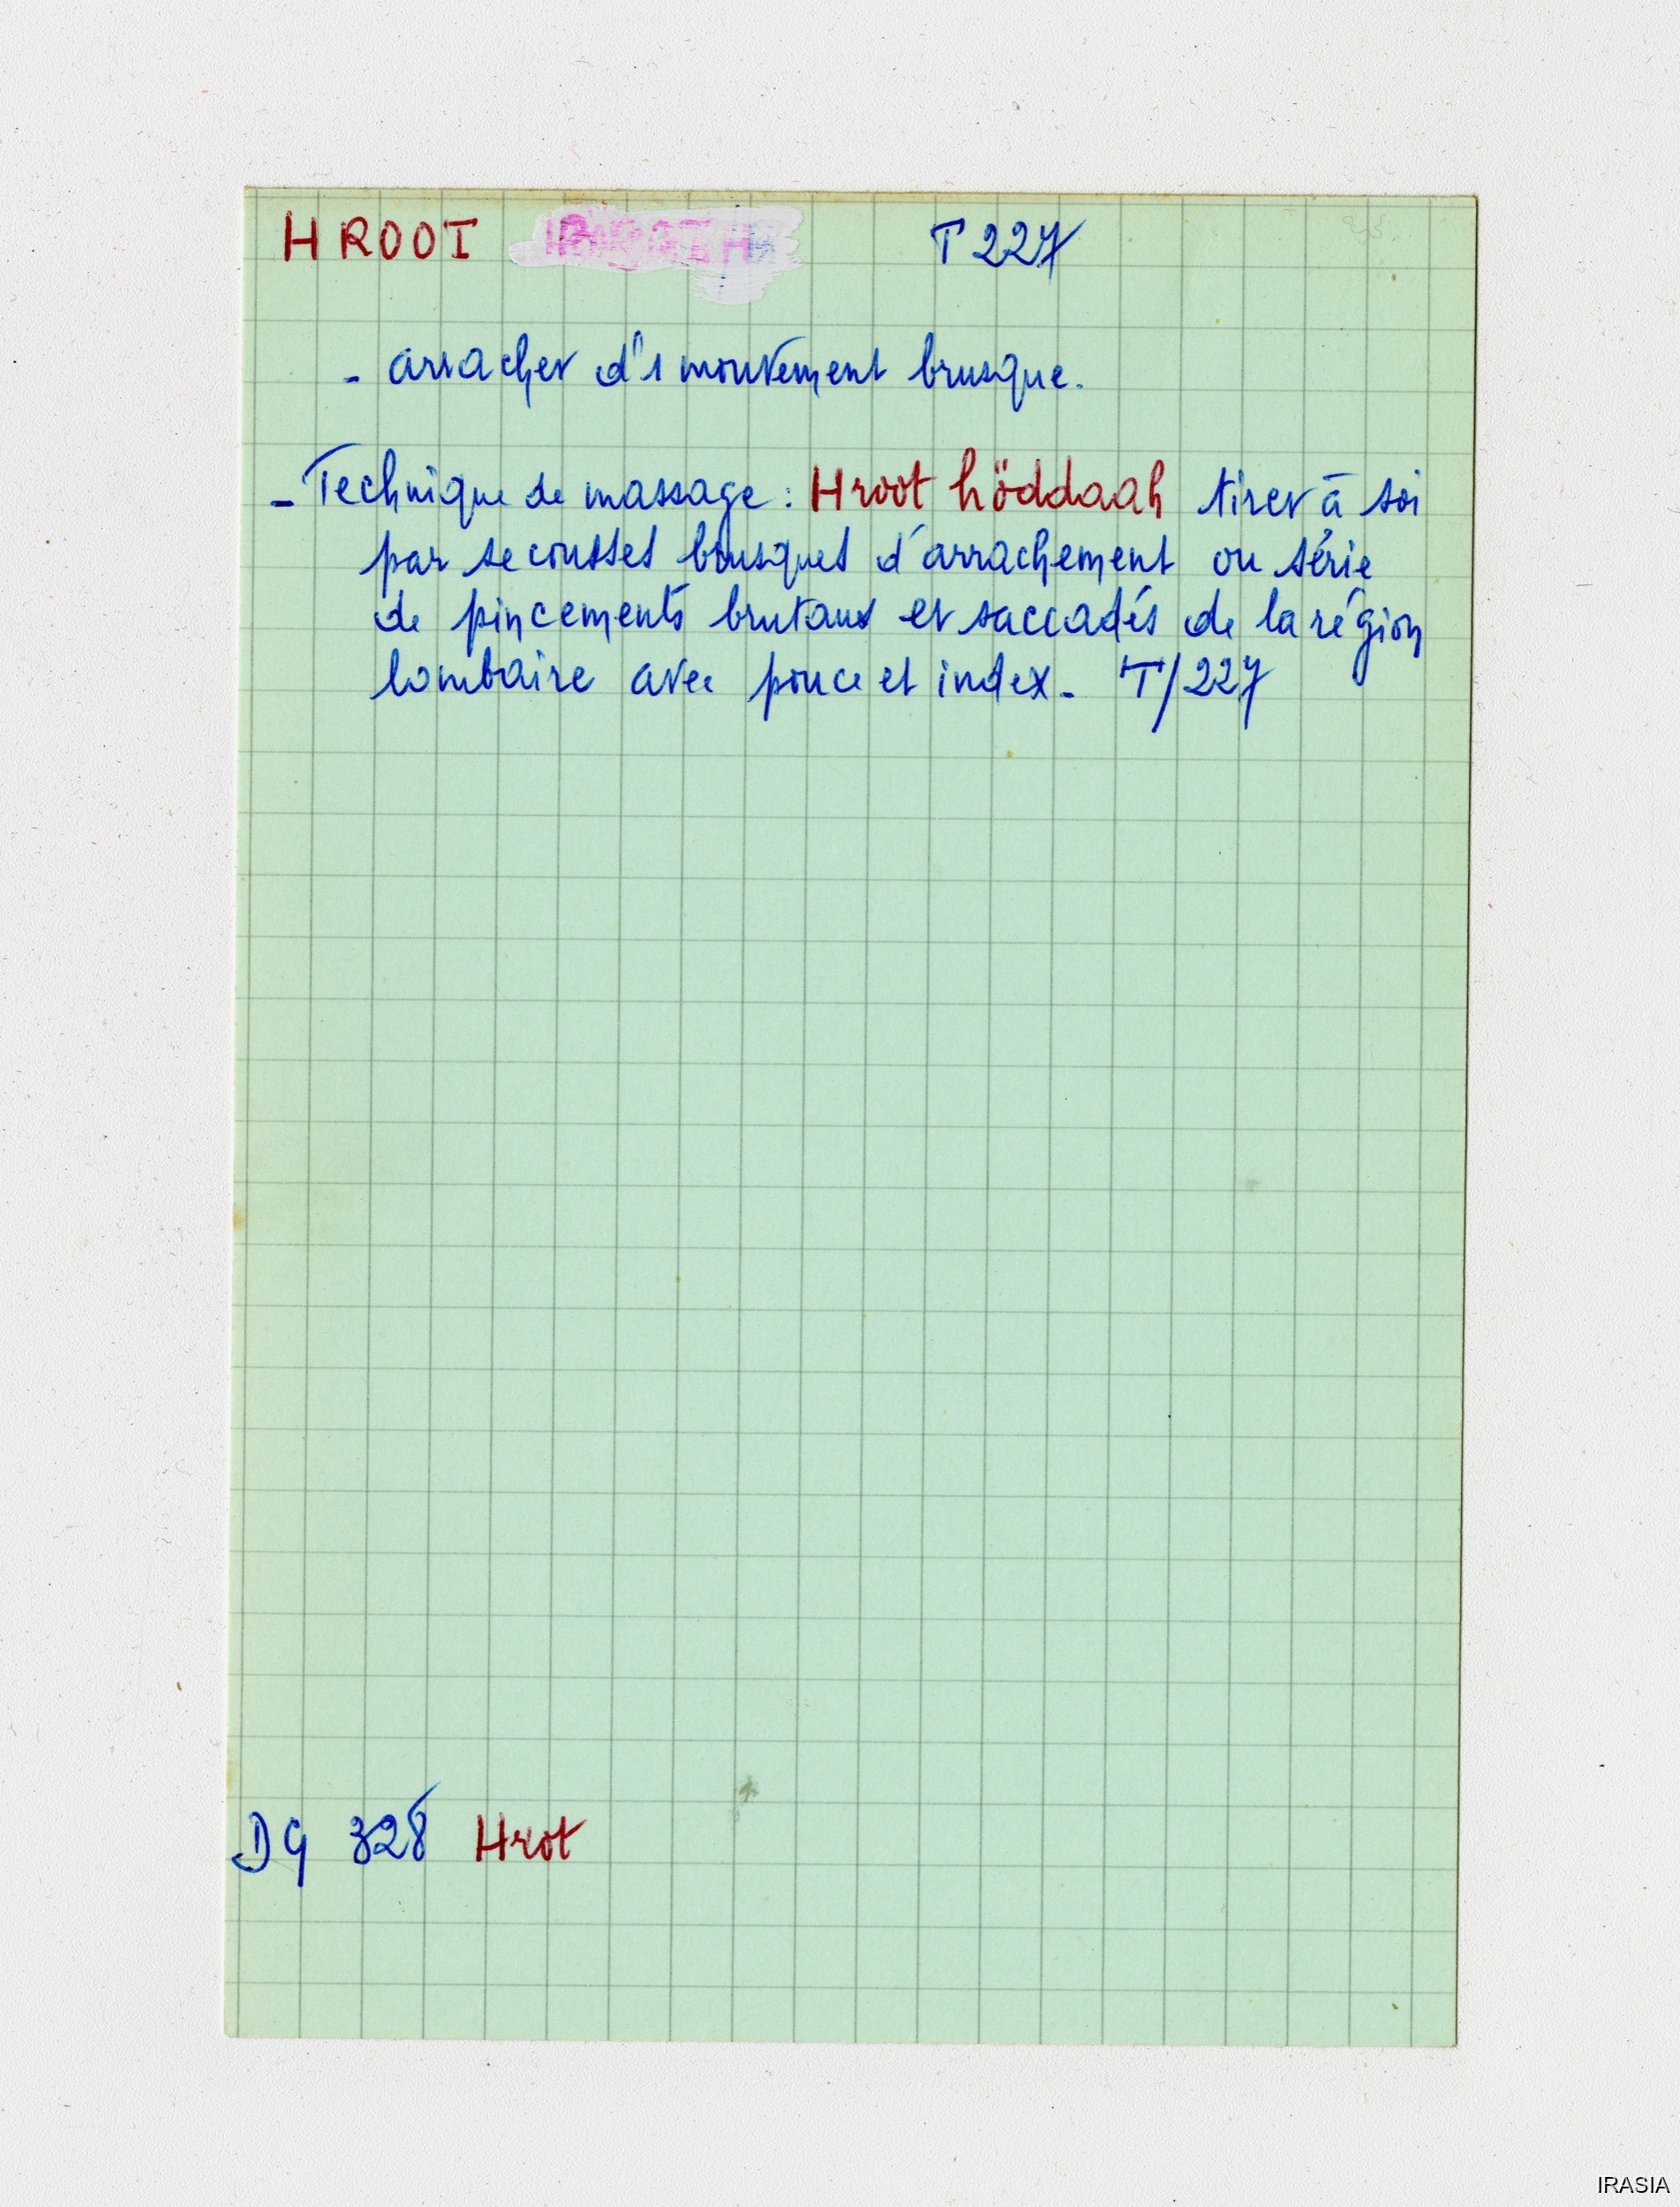 HROOT T 227
- arracher d'1 mouvement brusque.
- Technique de massage : Hroot höddaah tirer à soi
par secousses brusques d'arrachement ou série
de pincements brutaux et saccadés de la région
lombaire avec pouce et index - T/227
DG 328 Hrot
IRASIA